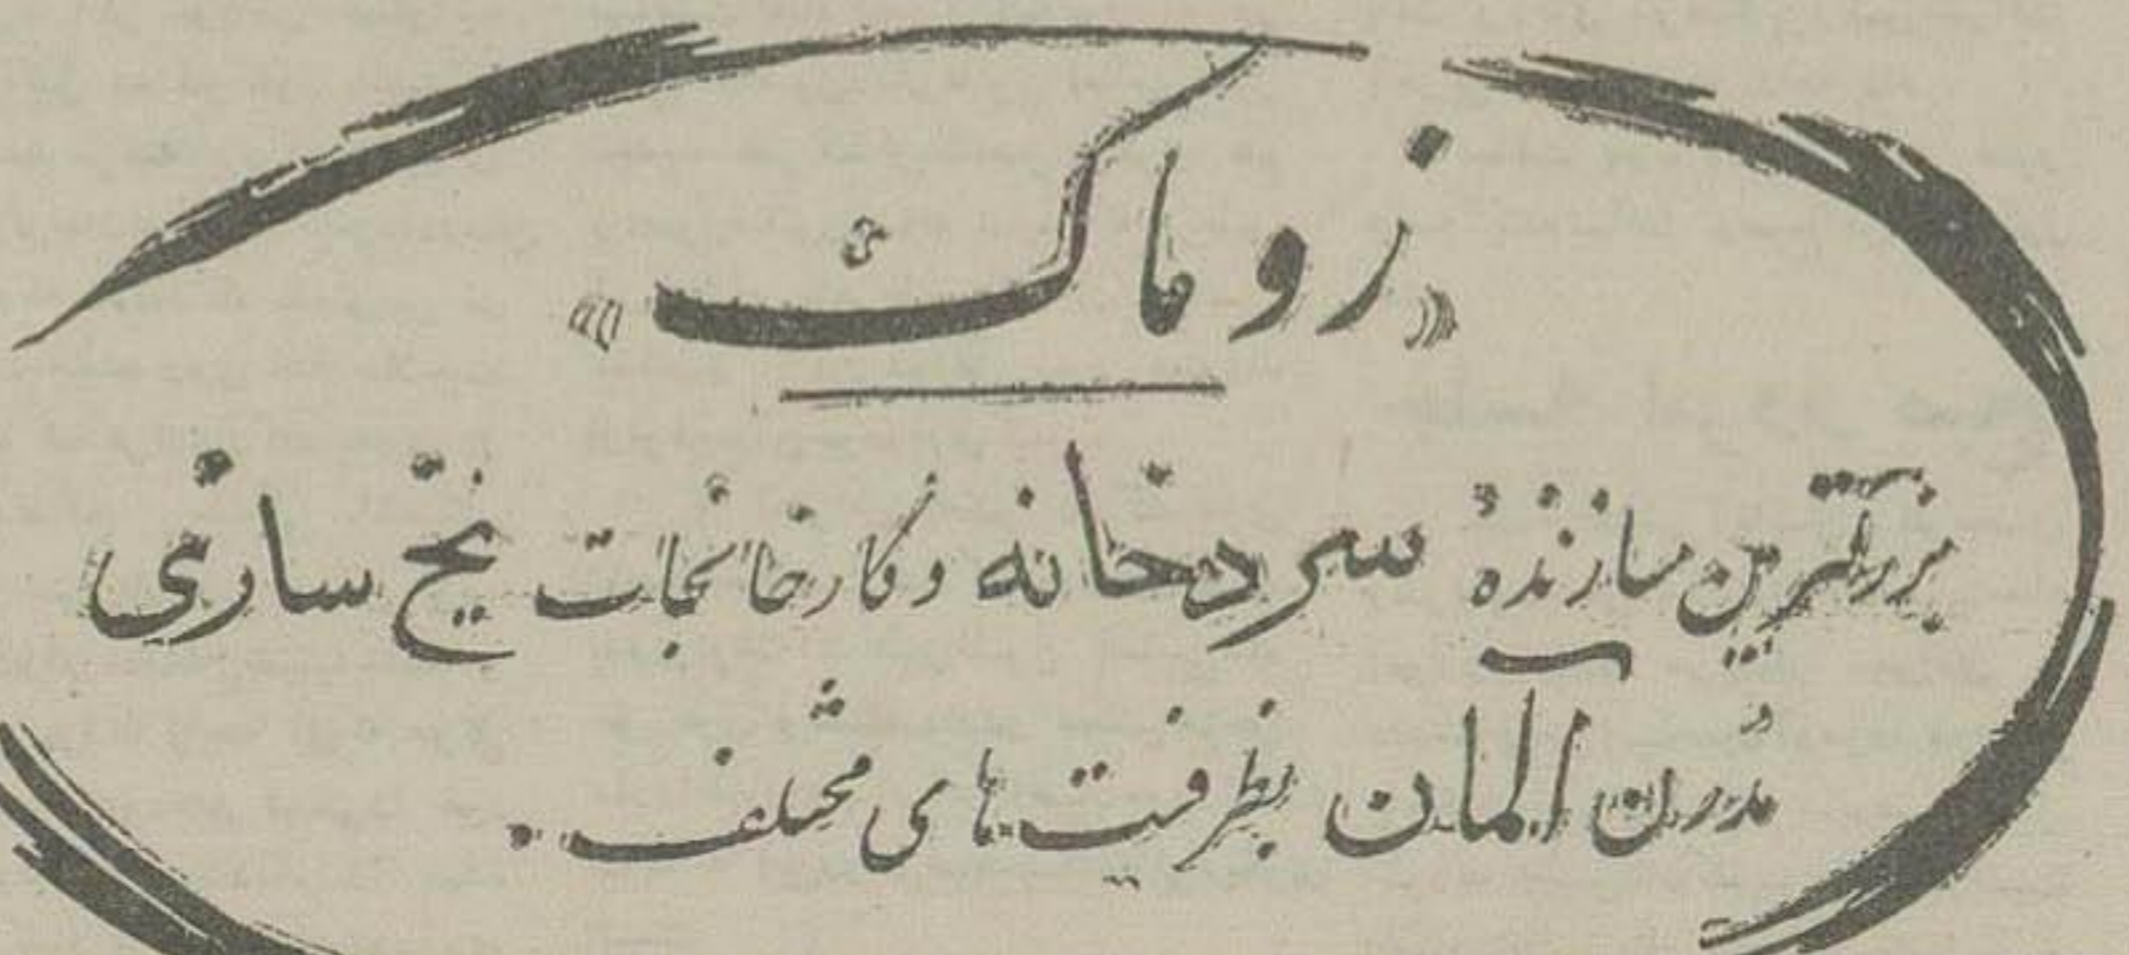 «زوماک»
بزرگترین سازندهٔ سردخانه و کارخانجات یخ سازی
مدرن آلمان بظرفیت های مختلف .